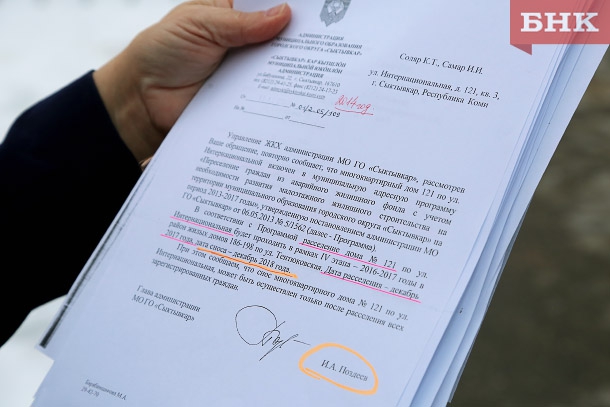 БНК
АДМИНИСТРАЦИЯ
МУНИЦИПАЛЬНОГО ОБРАЗОВАНИЯ
ГОРОДСКОГО ОКРУГА «СЫКТЫВКАР»
«СЫКТЫВКАР» КАР КЫТШЛÖН
МУНИЦИПАЛЬНÖЙ ЮКÖНЛÖН
АДМИНИСТРАЦИЯ
Соляр К.Т., Самар И.И.
ул. Интернациональная, д. 121, кв. 3,
г. Сыктывкар, Республика Коми
2014 год
От № 01/2-05/309
На №
Управление ЖКХ администрации МО ГО «Сыктывкар», рассмотрев
Ваше обращение, повторно сообщает, что многоквартирный дом 121 по ул.
Интернациональной включен в муниципальную адресную программу
«Переселение граждан из аварийного жилищного фонда с учетом
необходимости развития малоэтажного жилищного строительства на
территории муниципального образования городского округа «Сыктывкар» на
период 2013-2017 годы», утвержденную постановлением администрации МО
ГО «Сыктывкар» от 06.05.2013 № 5/1562 (далее - Программа).
В соответствии с Программой расселение дома № 121 по ул.
Интернациональная будет проходить в рамках IV этапа – 2016-2017 годы в
район жилых домов 186-198 по ул. Тентюковская. Дата расселения - декабрь
2017 года, дата сноса - декабрь 2018 года.
При этом сообщаем, что снос многоквартирного дома № 121 по ул.
Интернациональная, может быть осуществлен только после расселения всех
зарегистрированных граждан.
Глава администрации
МО ГО «Сыктывкар»
И.А. Поздеев